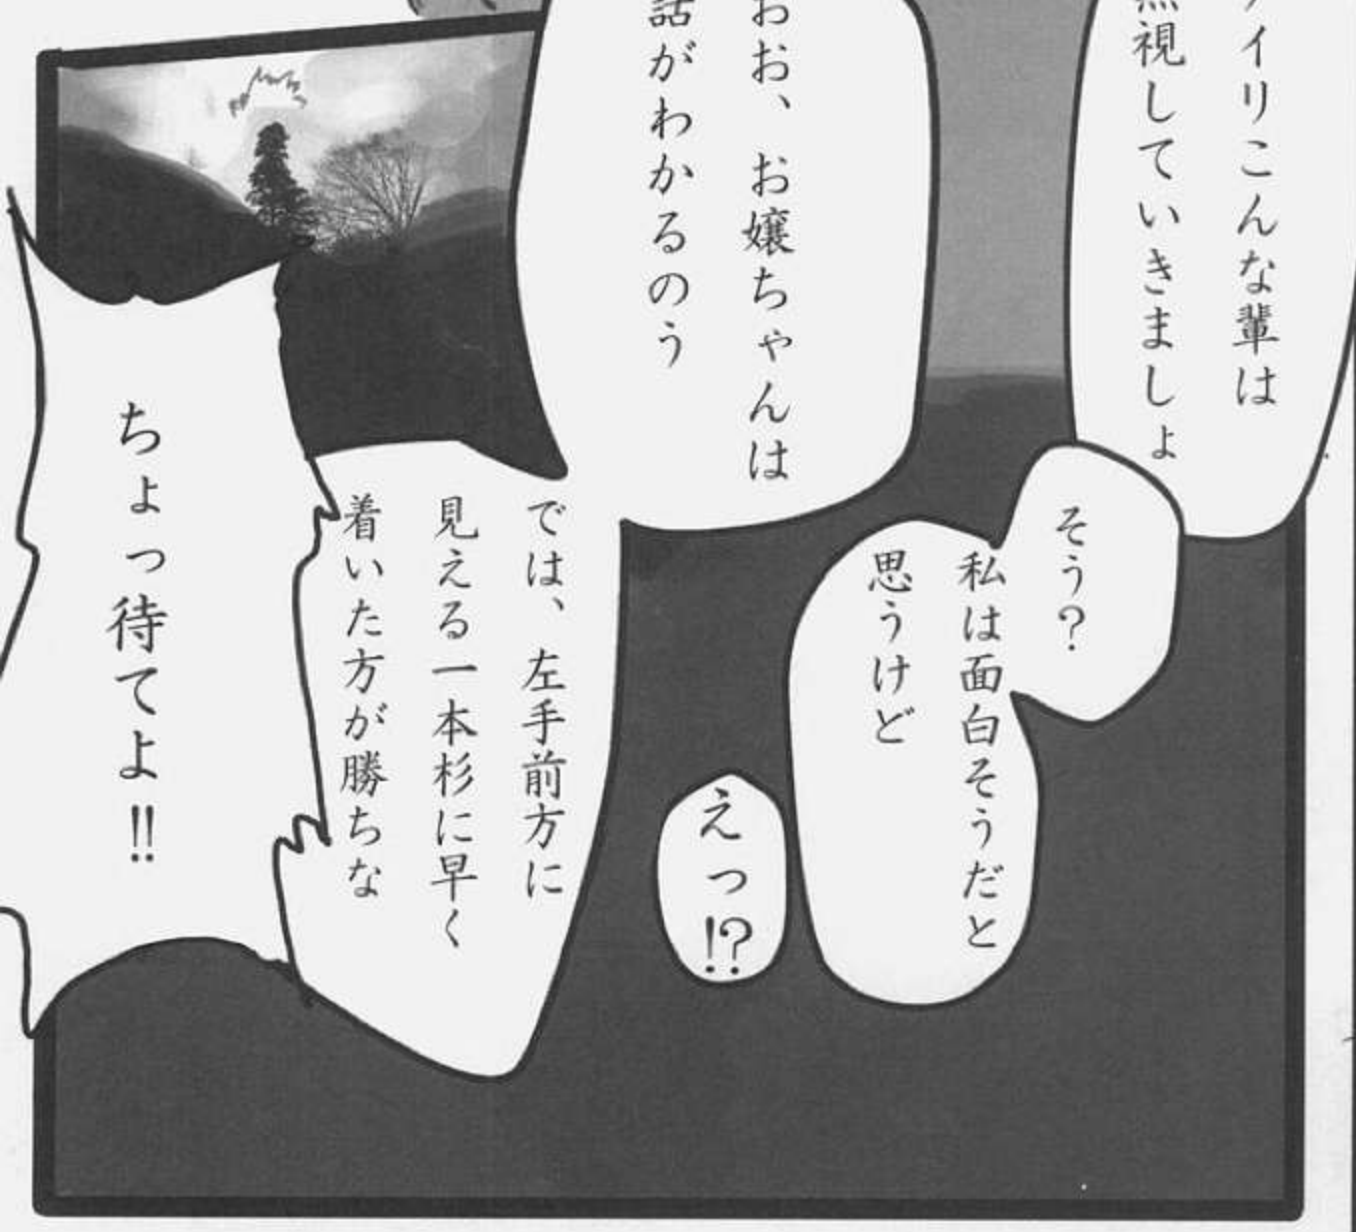 イリこんな輩は
無視していきましょ
そう？
私は面白そうだと
思うけど
えっ!?
おお、お嬢ちゃんは
話がわかるのう
では、左手前方に
見える一本杉に早く
着いた方が勝ちな
ちょっ待てよ!!